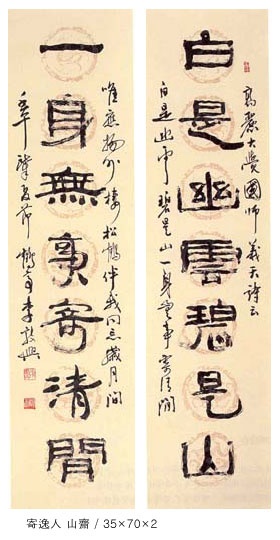 白是幽雲碧是山
高麗大覺國師義天詩云
白是幽雲碧是山一身無事寄清閒
一身無事寄清閒
唯應物外棲松鶴伴我同忘歲月間
肇夏節鶴亭李敦興
寄逸人 山齋 / 35×70×2